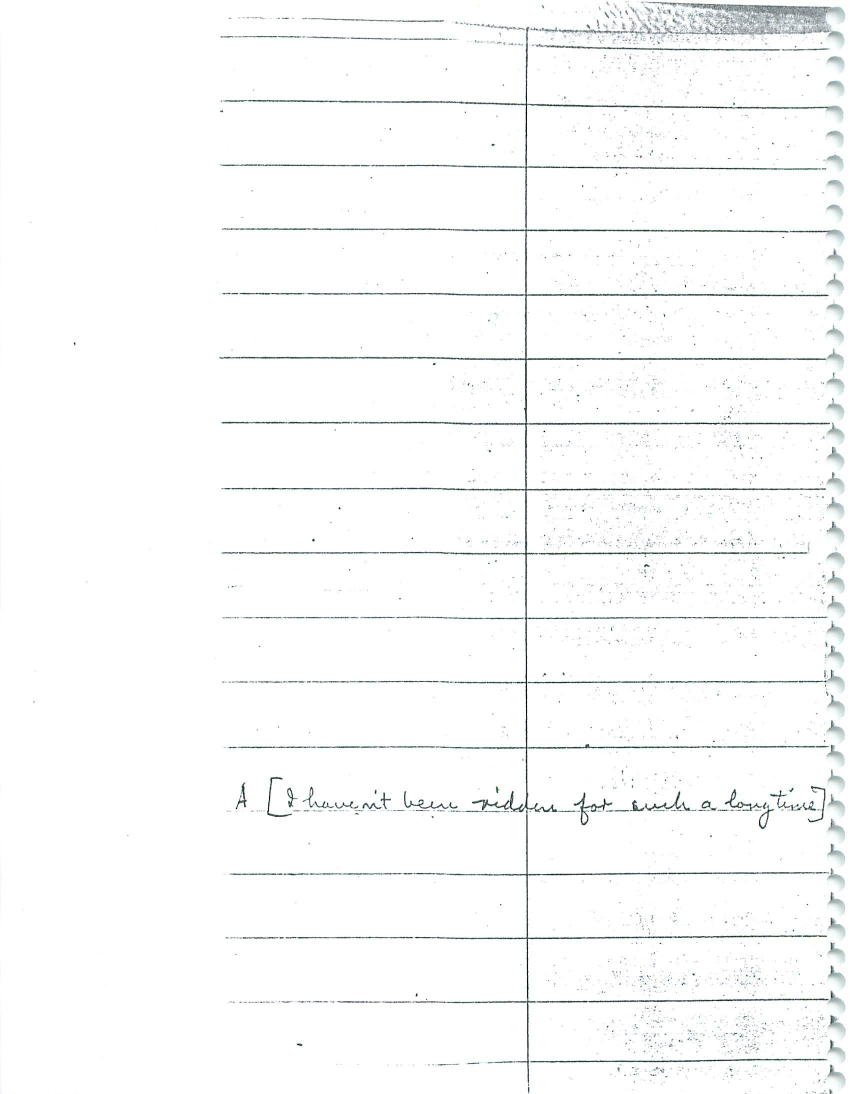 A [I haven't been ridden for such a long time]